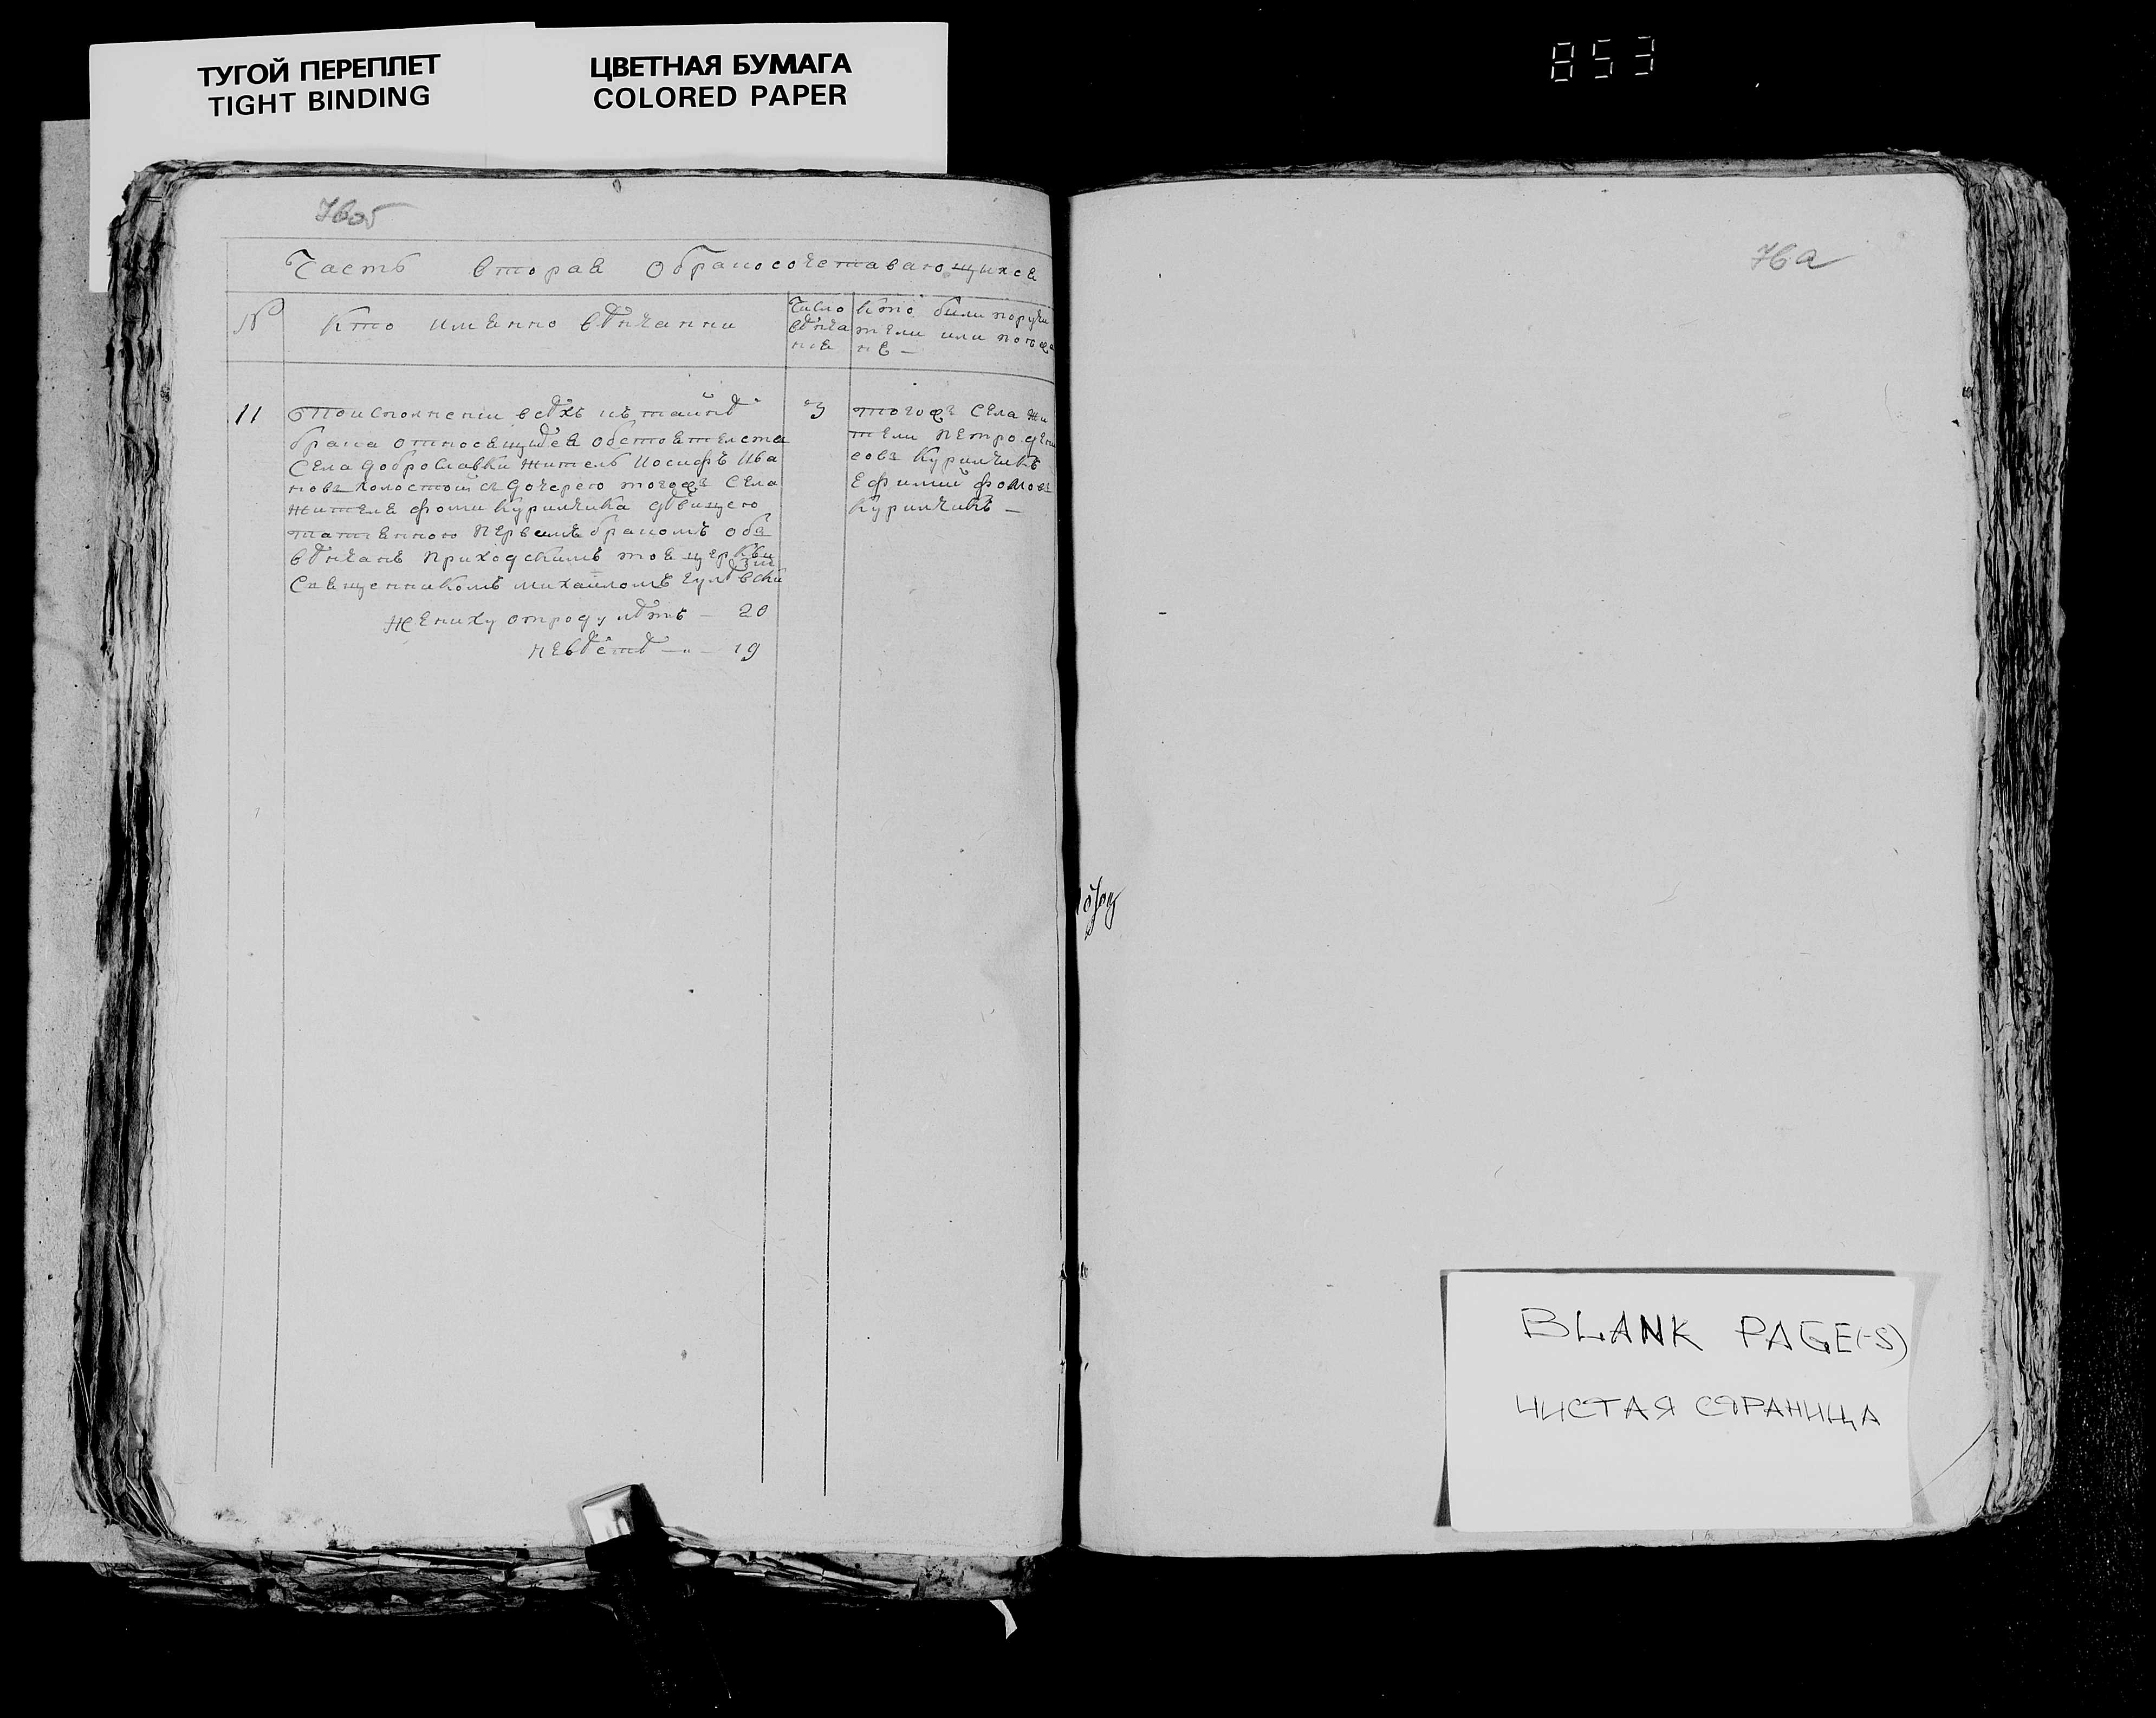 ТУГОЙ ПЕРЕПЛЕТ
TIGHT BINDING
ЦВЕТНАЯ БУМАГА
COLORED PAPER
853
76об
Часть вторая о бракосочетавающихся
№
Кто именно вѣнчанни
Число
вѣнча
ния
кто били поручи
тели или поѣзжа
не —
11
По исполнении всѣхъ къ тайнѣ
брака относящиеся обстоятелства
села Доброславки житель Иосифъ Ива
новъ холостой съ дочерею тогожъ села
жителя Фоми Курилчика дѣвицею
первымъ бракомъ оба
вѣнчанъ приходскимъ тоя церкви
священникомъ Михаиломъ
жениху отроду лѣтъ — 20
невѣстѣ — " — 19
3
тогожъ села жи
тели Петро Дени
совъ Курилчикъ
Ефимий Фомовъ
Курилчикъ —
76а
BLANK PAGE(-S)
ЧИСТАЯ СТРАНИЦА